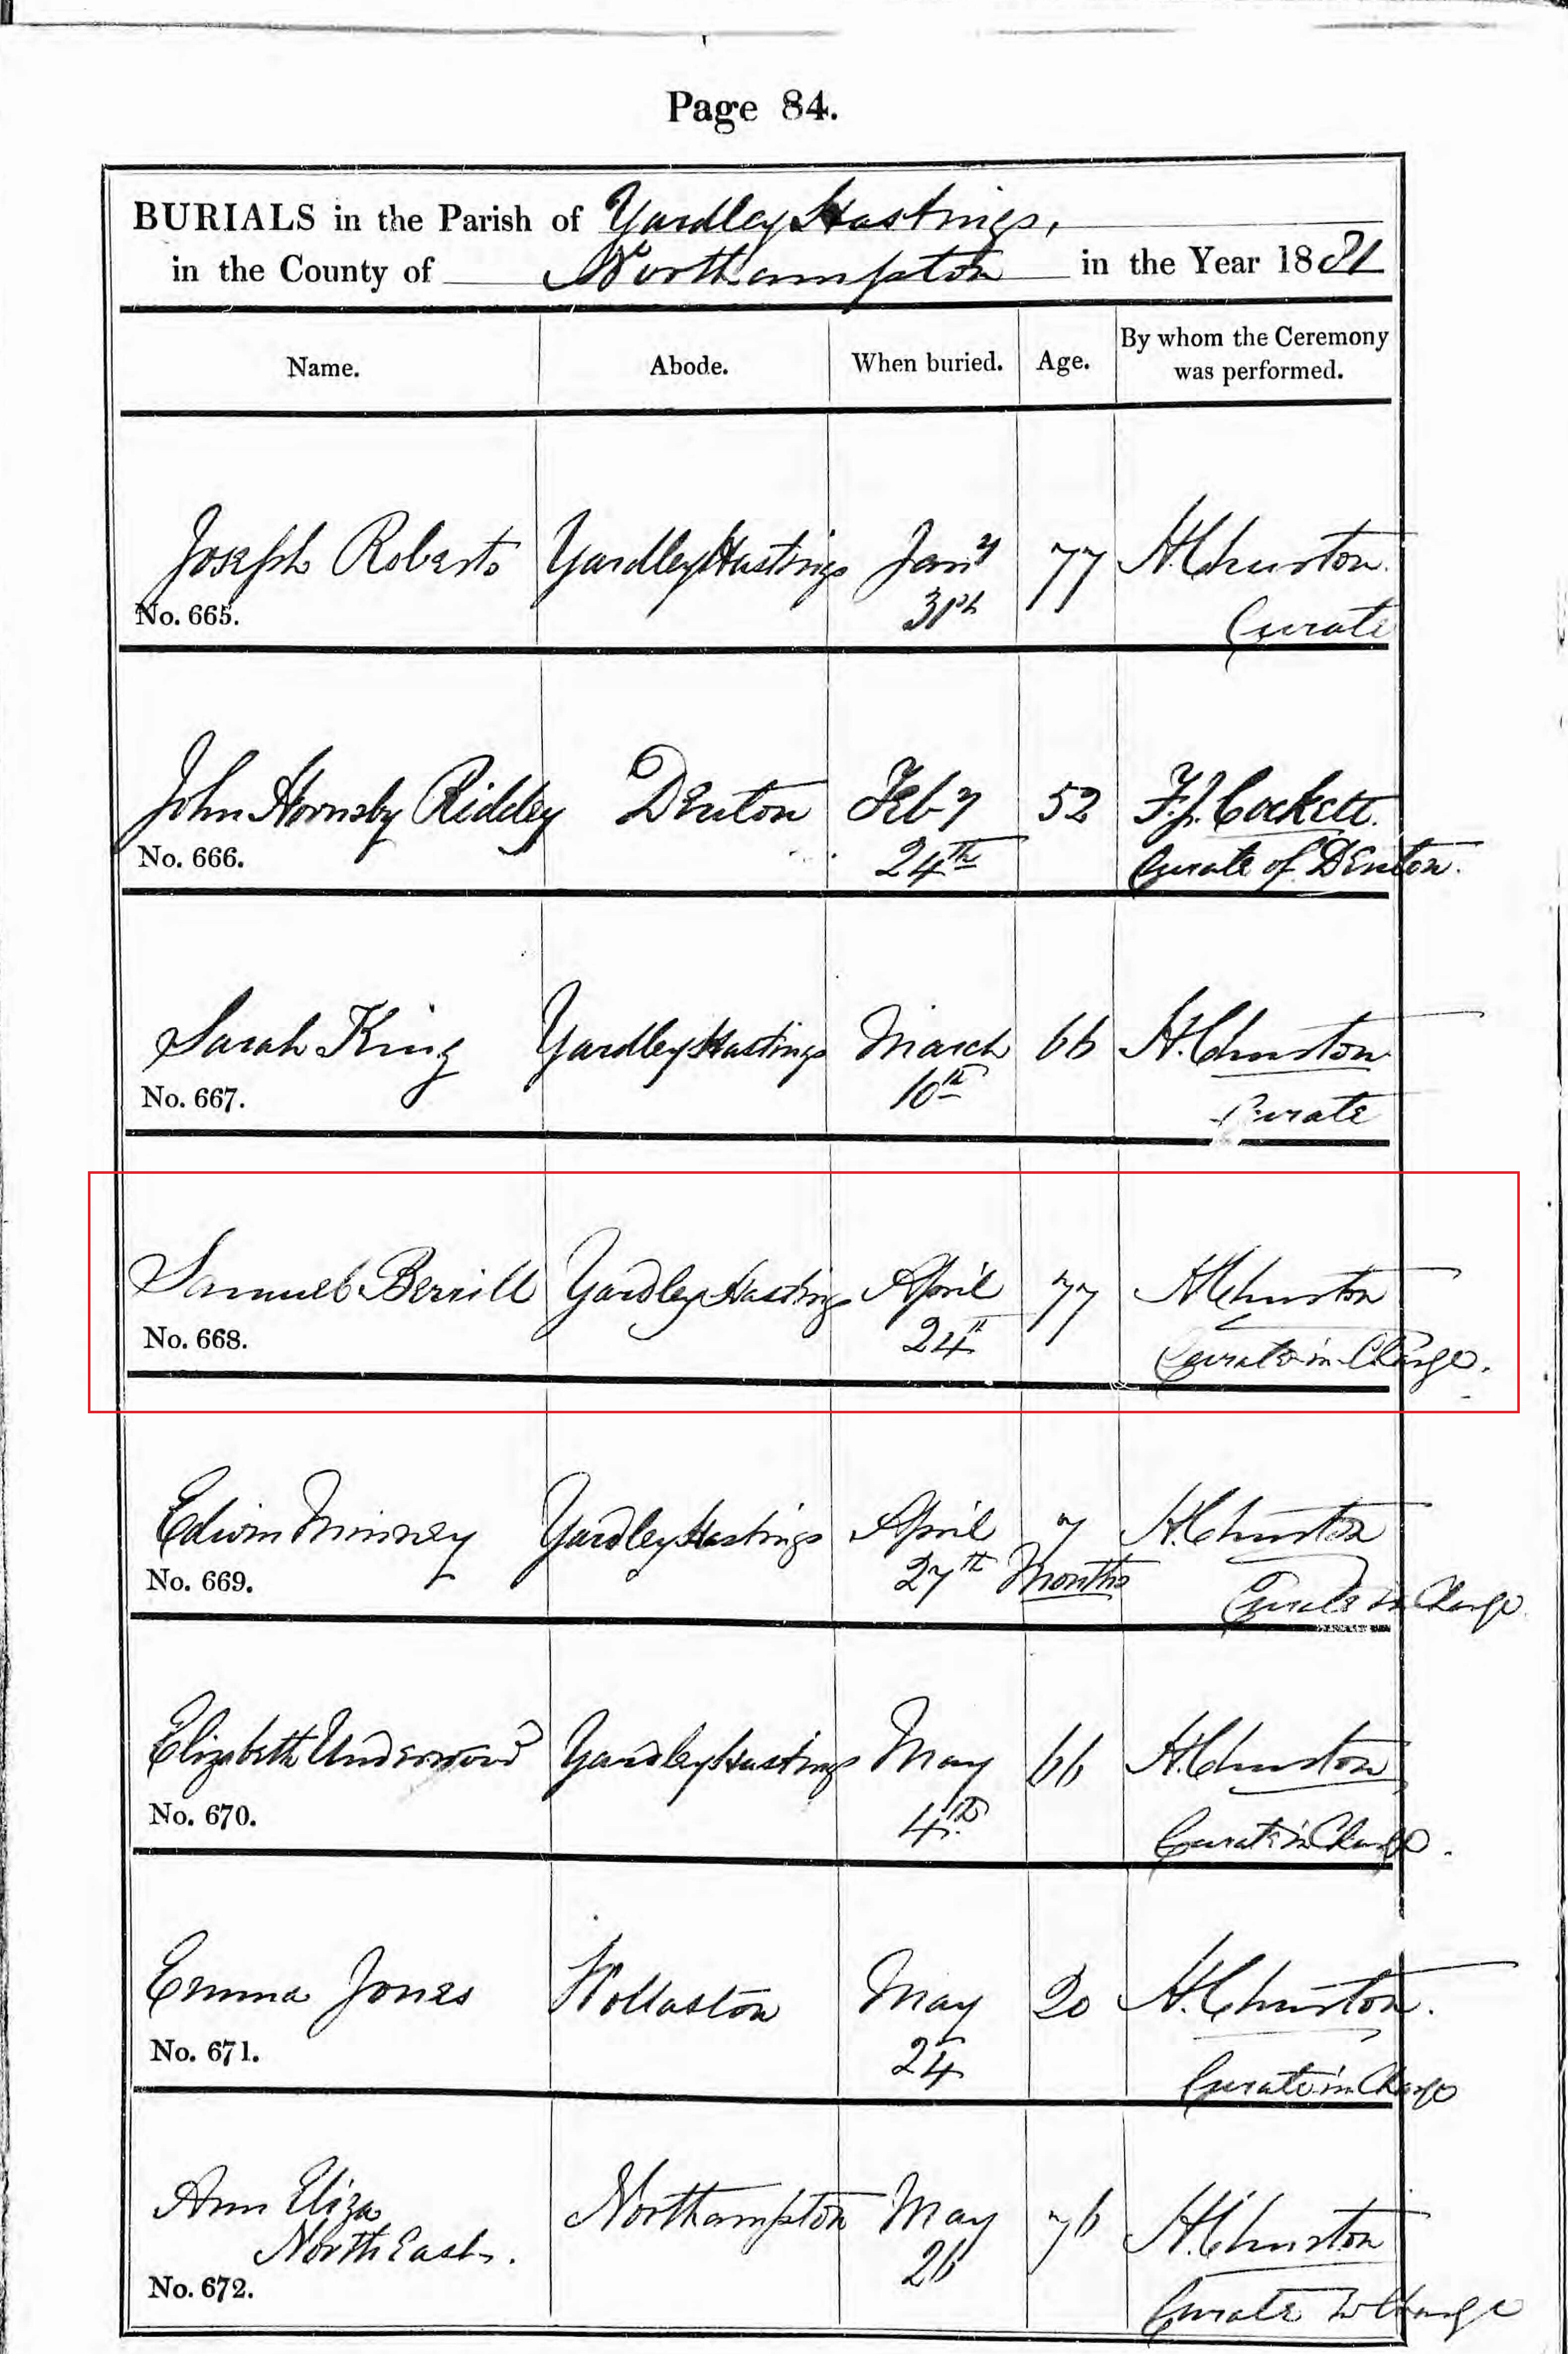 Page 84.
BURIALS in the Parish of Yardley Hastings,
in the County of Northampton in the Year 1881
Name. Abode. When buried. Age. By whom the Ceremony was performed.
Joseph Roberts Yardley Hastings Jany 77 H. Churston.
No. 665. 31st Curate
John Hornsby Riddey Denton Feby 52 F.J. Cockett.
No. 666. 24th Curate of Denton.
Sarah King Yardley Hastings March 66 H. Churston
No. 667. 10th Curate
Samuel Berrill Yardley Hastings April 77 H Churston
No. 668. 24th Curate in Charge.
Edwin Minney Yardley Hastings April 7 H. Churston
No. 669. 27th Months Curate in Charge
Elizabeth Underwood Yardley Hastings May 66 H. Churston
No. 670. 4th Curate in Charge.
Emma Jones Wollaston May 20 H. Churston.
No. 671. 24 Curate in Charge
Ann Eliza Northampton May 76 H. Churston
North East.
No. 672. 26 Curate in Charge